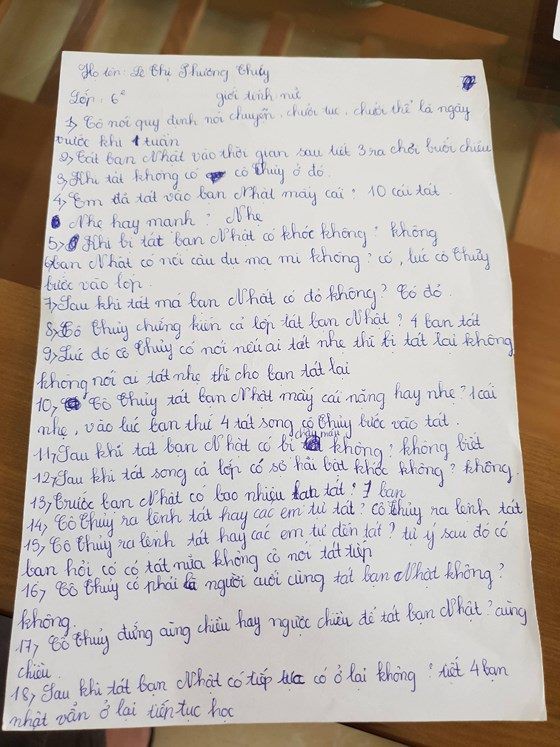 Họ tên: Lê Thị Phương Thuỷ
Lớp: 6e giới tính nữ
1, Cô nói quy định nói chuyện, chưởi tục, chưởi thề là ngày
trước khi 1 tuần
2, Tát bạn Nhật vào thời gian sau tiết 3 ra chơi buổi chiều
3, Khi tát không có cô Thuỷ ở đó.
4, Em đã tát vào bạn Nhật mấy cái? 10 cái tát.
Nhẹ hay mạnh? Nhẹ
5, Khi bị tát bạn Nhật có khóc không? không
6, bạn Nhật có nói câu du ma mi không? có, lúc cô Thuỷ
bước vào lớp.
7, Sau khi tát má bạn Nhật có đỏ không? Có đỏ.
8, Cô Thuỷ chứng kiến cả lớp tát bạn Nhật? 4 bạn tát
9, Lúc đó cô Thuỷ có nói nếu ai tát nhẹ thì bị tát lại không
không nói ai tát nhẹ thì cho bạn tát lại
10, Cô Thuỷ tát bạn Nhật mấy cái nặng hay nhẹ? 1 cái
nhẹ, vào lúc bạn thứ 4 tát song cô Thuỷ bước vào tát.
11, Sau khi tát bạn Nhật có bị chảy máu không? không biết
12, Sau khi tát song cả lớp có sợ hãi bật khóc không? không.
13, Trước bạn Nhật có bao nhiêu bạn tát? 7 bạn
14, Cô Thuỷ ra lệnh tát hay các em tự tát? cô Thuỷ ra lệnh tát
15, Cô Thuỷ ra lệnh tát hay các em tự đến tát? tự ý sau đó có
bạn hỏi cô có tát nữa không cô nói tát tiếp
16, Cô Thuỷ có phải là người cuối cùng tát bạn Nhật không?
không.
17, Cô Thuỷ đứng cùng chiều hay ngược chiều để tát bạn Nhật? cùng
chiều.
18, Sau khi tát bạn Nhật có tiếp tục có ở lại không? tiết 4 bạn
nhật vẫn ở lại tiếp tục học